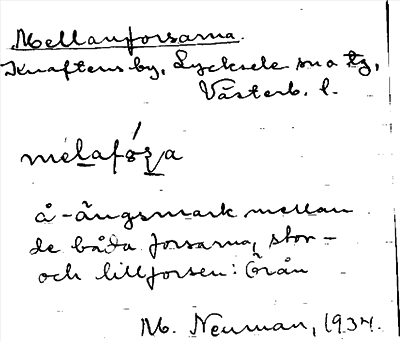 Mellanforsarna.
Knaftens by, Lycksele sn a tg,
Västerb. l.
melafóṛa
å-ängsmark mellan
de båda forsarna, stor-
och lillforsen: Örån
M. Neuman, 1934.